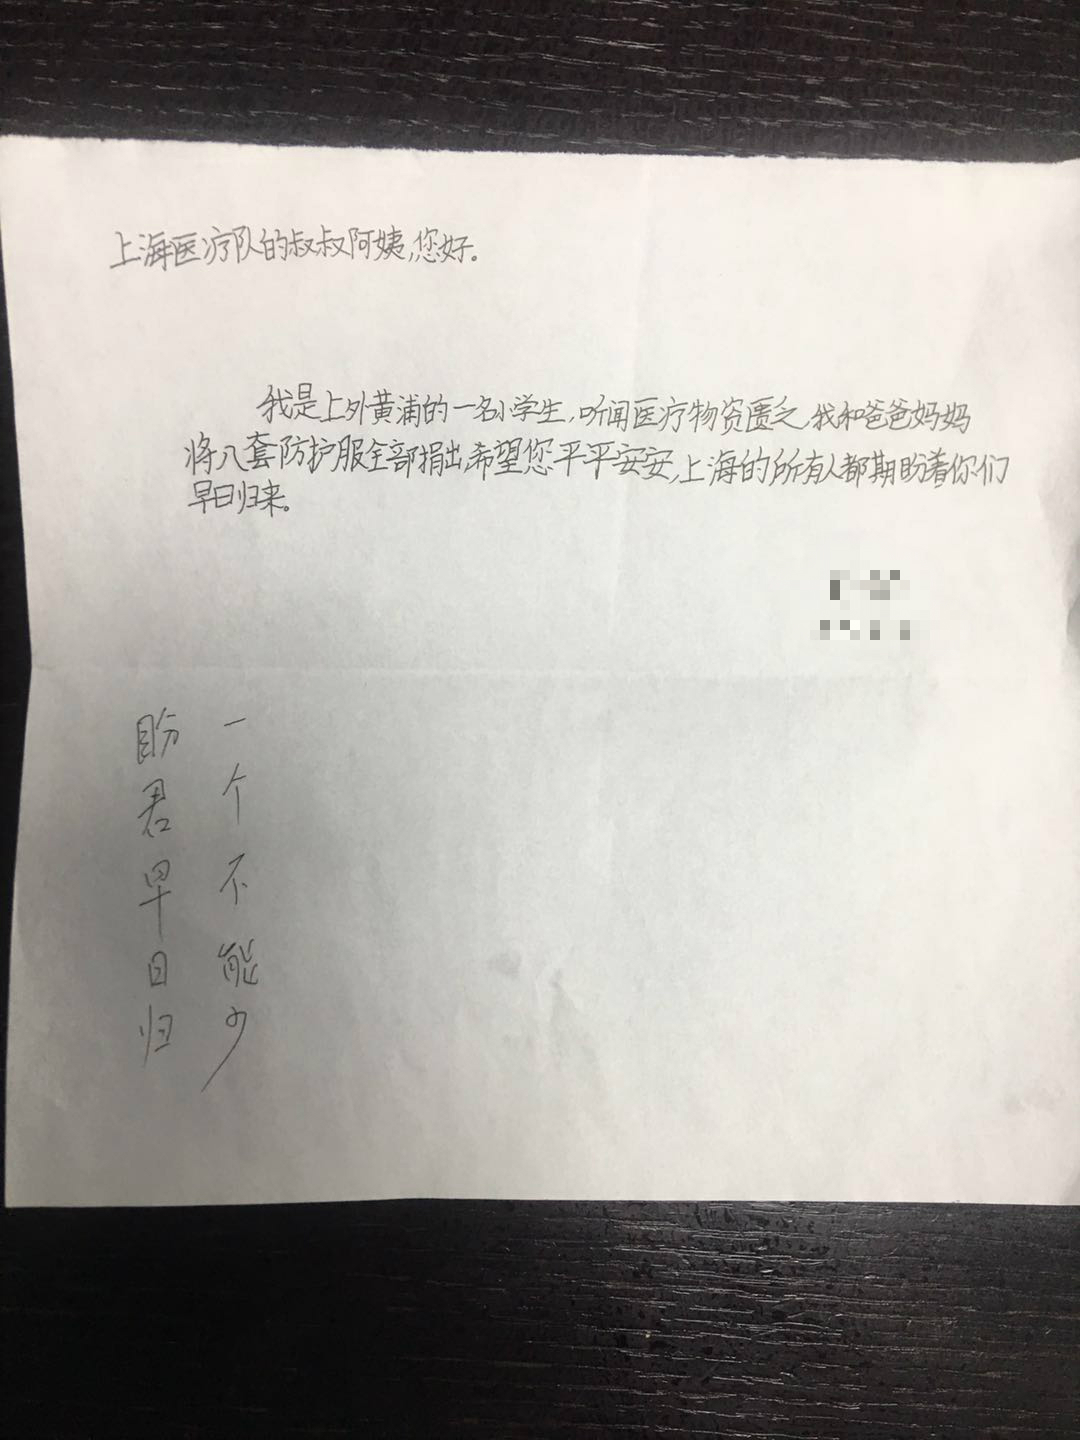 上海医疗队的叔叔阿姨,您好。
我是上外黄浦的一名小学生,听闻医疗物资匮乏,我和爸爸妈妈
将八套防护服全部捐出,希望您平平安安,上海的所有人都期盼着你们
早日归来。
一个不能少
盼君早日归